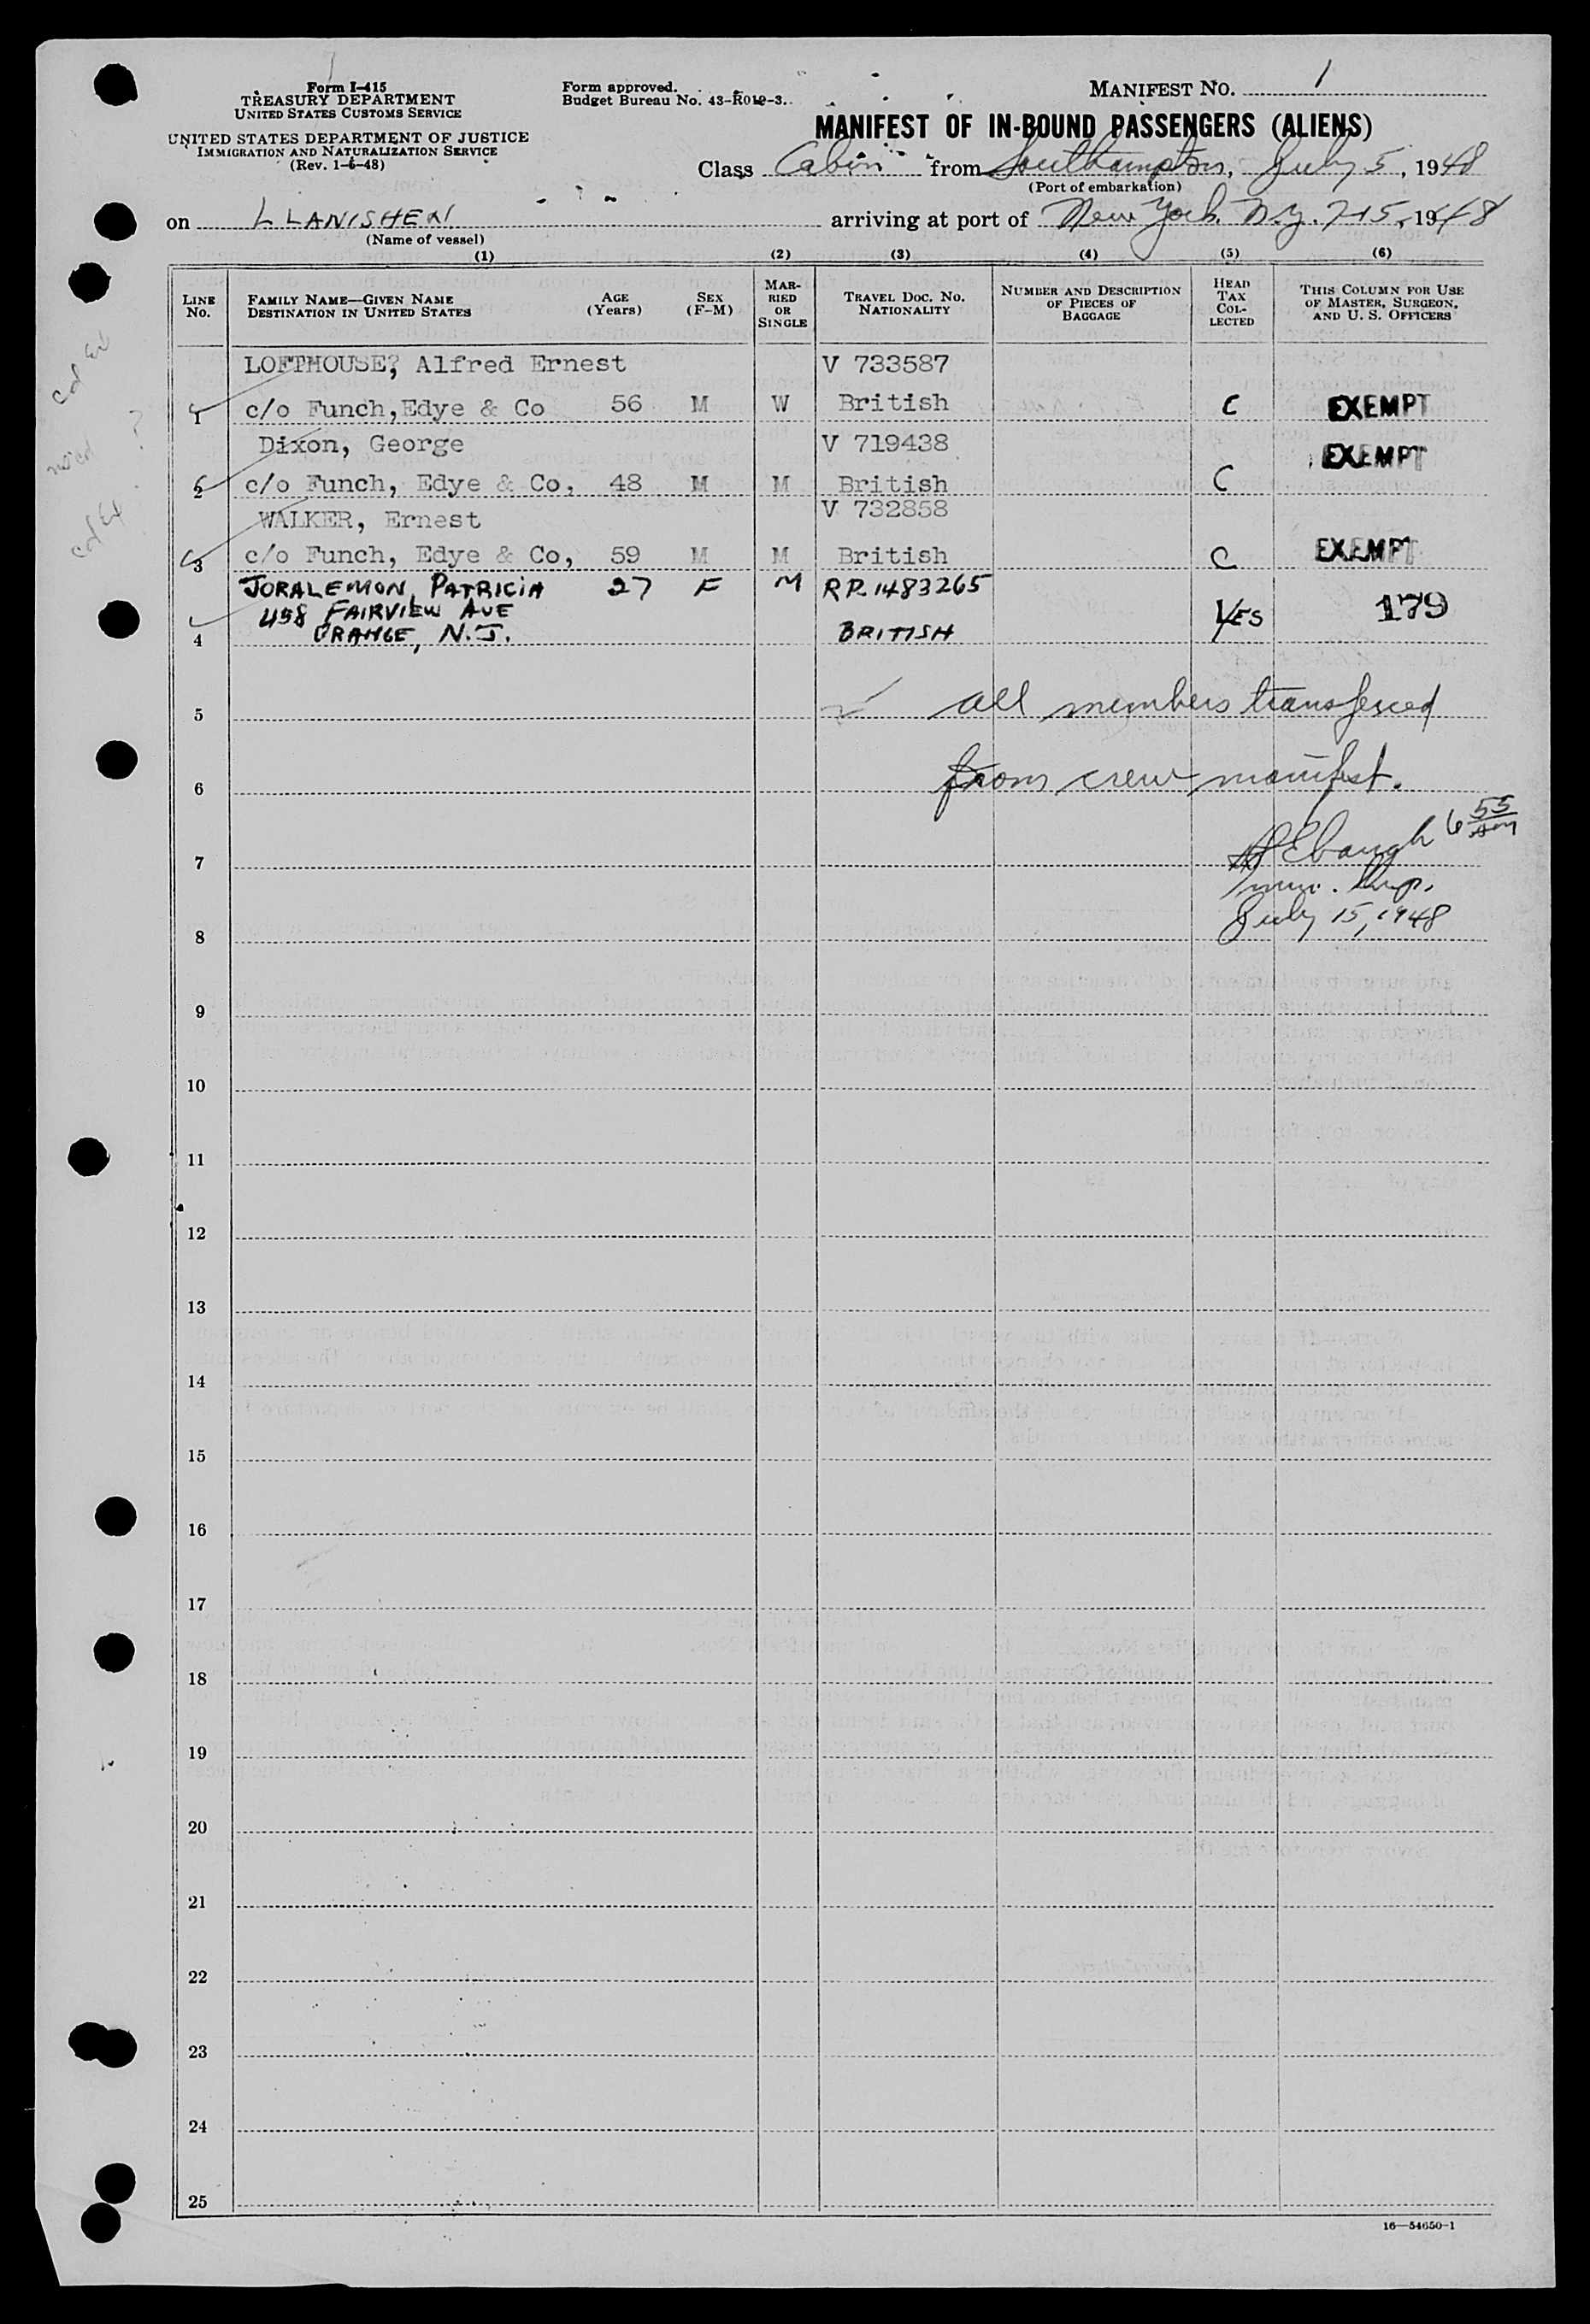 Form I-415
TREASURY DEPARTMENT
UNITED STATES CUSTOMS SERVICE
UNITED STATES DEPARTMENT OF JUSTICE
IMMIGRATION AND NATURALIZATION SERVICE
(Rev. 1-6-48)
Form approved.
Budget Bureau No. 43-R019-3.
MANIFEST NO. 1
MANIFEST OF IN-BOUND PASSENGERS (ALIENS)
Class Cabin from Southampton, July 5, 1948
(Port of embarkation)
on LLANISHEN arriving at port of New York N.Y. 7-15, 1948
(Name of vessel)
(1) (2) (3) (4) (5) (6)
LINE No. FAMILY NAME—GIVEN NAME DESTINATION IN UNITED STATES AGE (Years) SEX (F-M) MARRIED OR SINGLE TRAVEL DOC. NO. NATIONALITY NUMBER AND DESCRIPTION OF PIECES OF BAGGAGE HEAD TAX COLLECTED THIS COLUMN FOR USE OF MASTER, SURGEON, AND U. S. OFFICERS
LOFTHOUSE, Alfred Ernest V 733587
1 c/o Funch,Edye & Co 56 M W British C EXEMPT
Dixon, George V 719438 EXEMPT
2 c/o Funch, Edye & Co, 48 M M British C
WALKER, Ernest V 732858
3 c/o Funch, Edye & Co, 59 M M British C EXEMPT
JORALEMON, PATRICIA 27 F M RP.1483265
458 FAIRVIEW AVE YES 179
4 ORANGE, N.J. BRITISH
5 all members transferred
6 from crew manifest.
7 Ebaugh 6 55
Imm. Insp.
8 July 15, 1948
9
10
11
12
13
14
15
16
17
18
19
20
21
22
23
24
25
16—54650-1